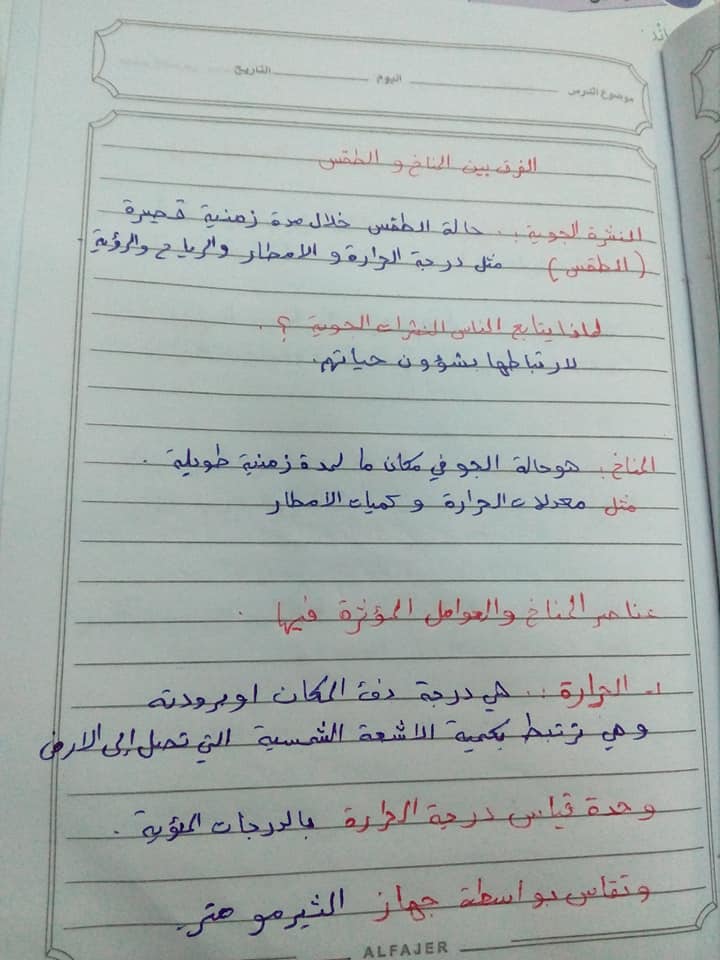 موضوع الدرس اليوم التاريخ
الفرق بين المناخ و الطقس
النشرة الجوية : حالة الطقس خلال مدة زمنية قصيرة
(الطقس) مثل درجة الحرارة و الامطار والرياح والرؤية
لماذا يتابع الناس النشرات الجوية ؟ .
لارتباطها بشؤون حياتهم.
المناخ : هو حالة الجو في مكان ما لمدة زمنية طويلة .
مثل معدلات الحرارة و كميات الامطار
عناصر المناخ والعوامل المؤثرة فيها .
١- الحرارة : هي درجة دفئ المكان او برودته
وهي ترتبط بكمية الاشعة الشمسية التي تصل إلى الارض
وحدة قياس درجة الحرارة بالدرجات المئوية .
وتقاس بواسطة جهاز الثيرمومتر.
ALFAJER